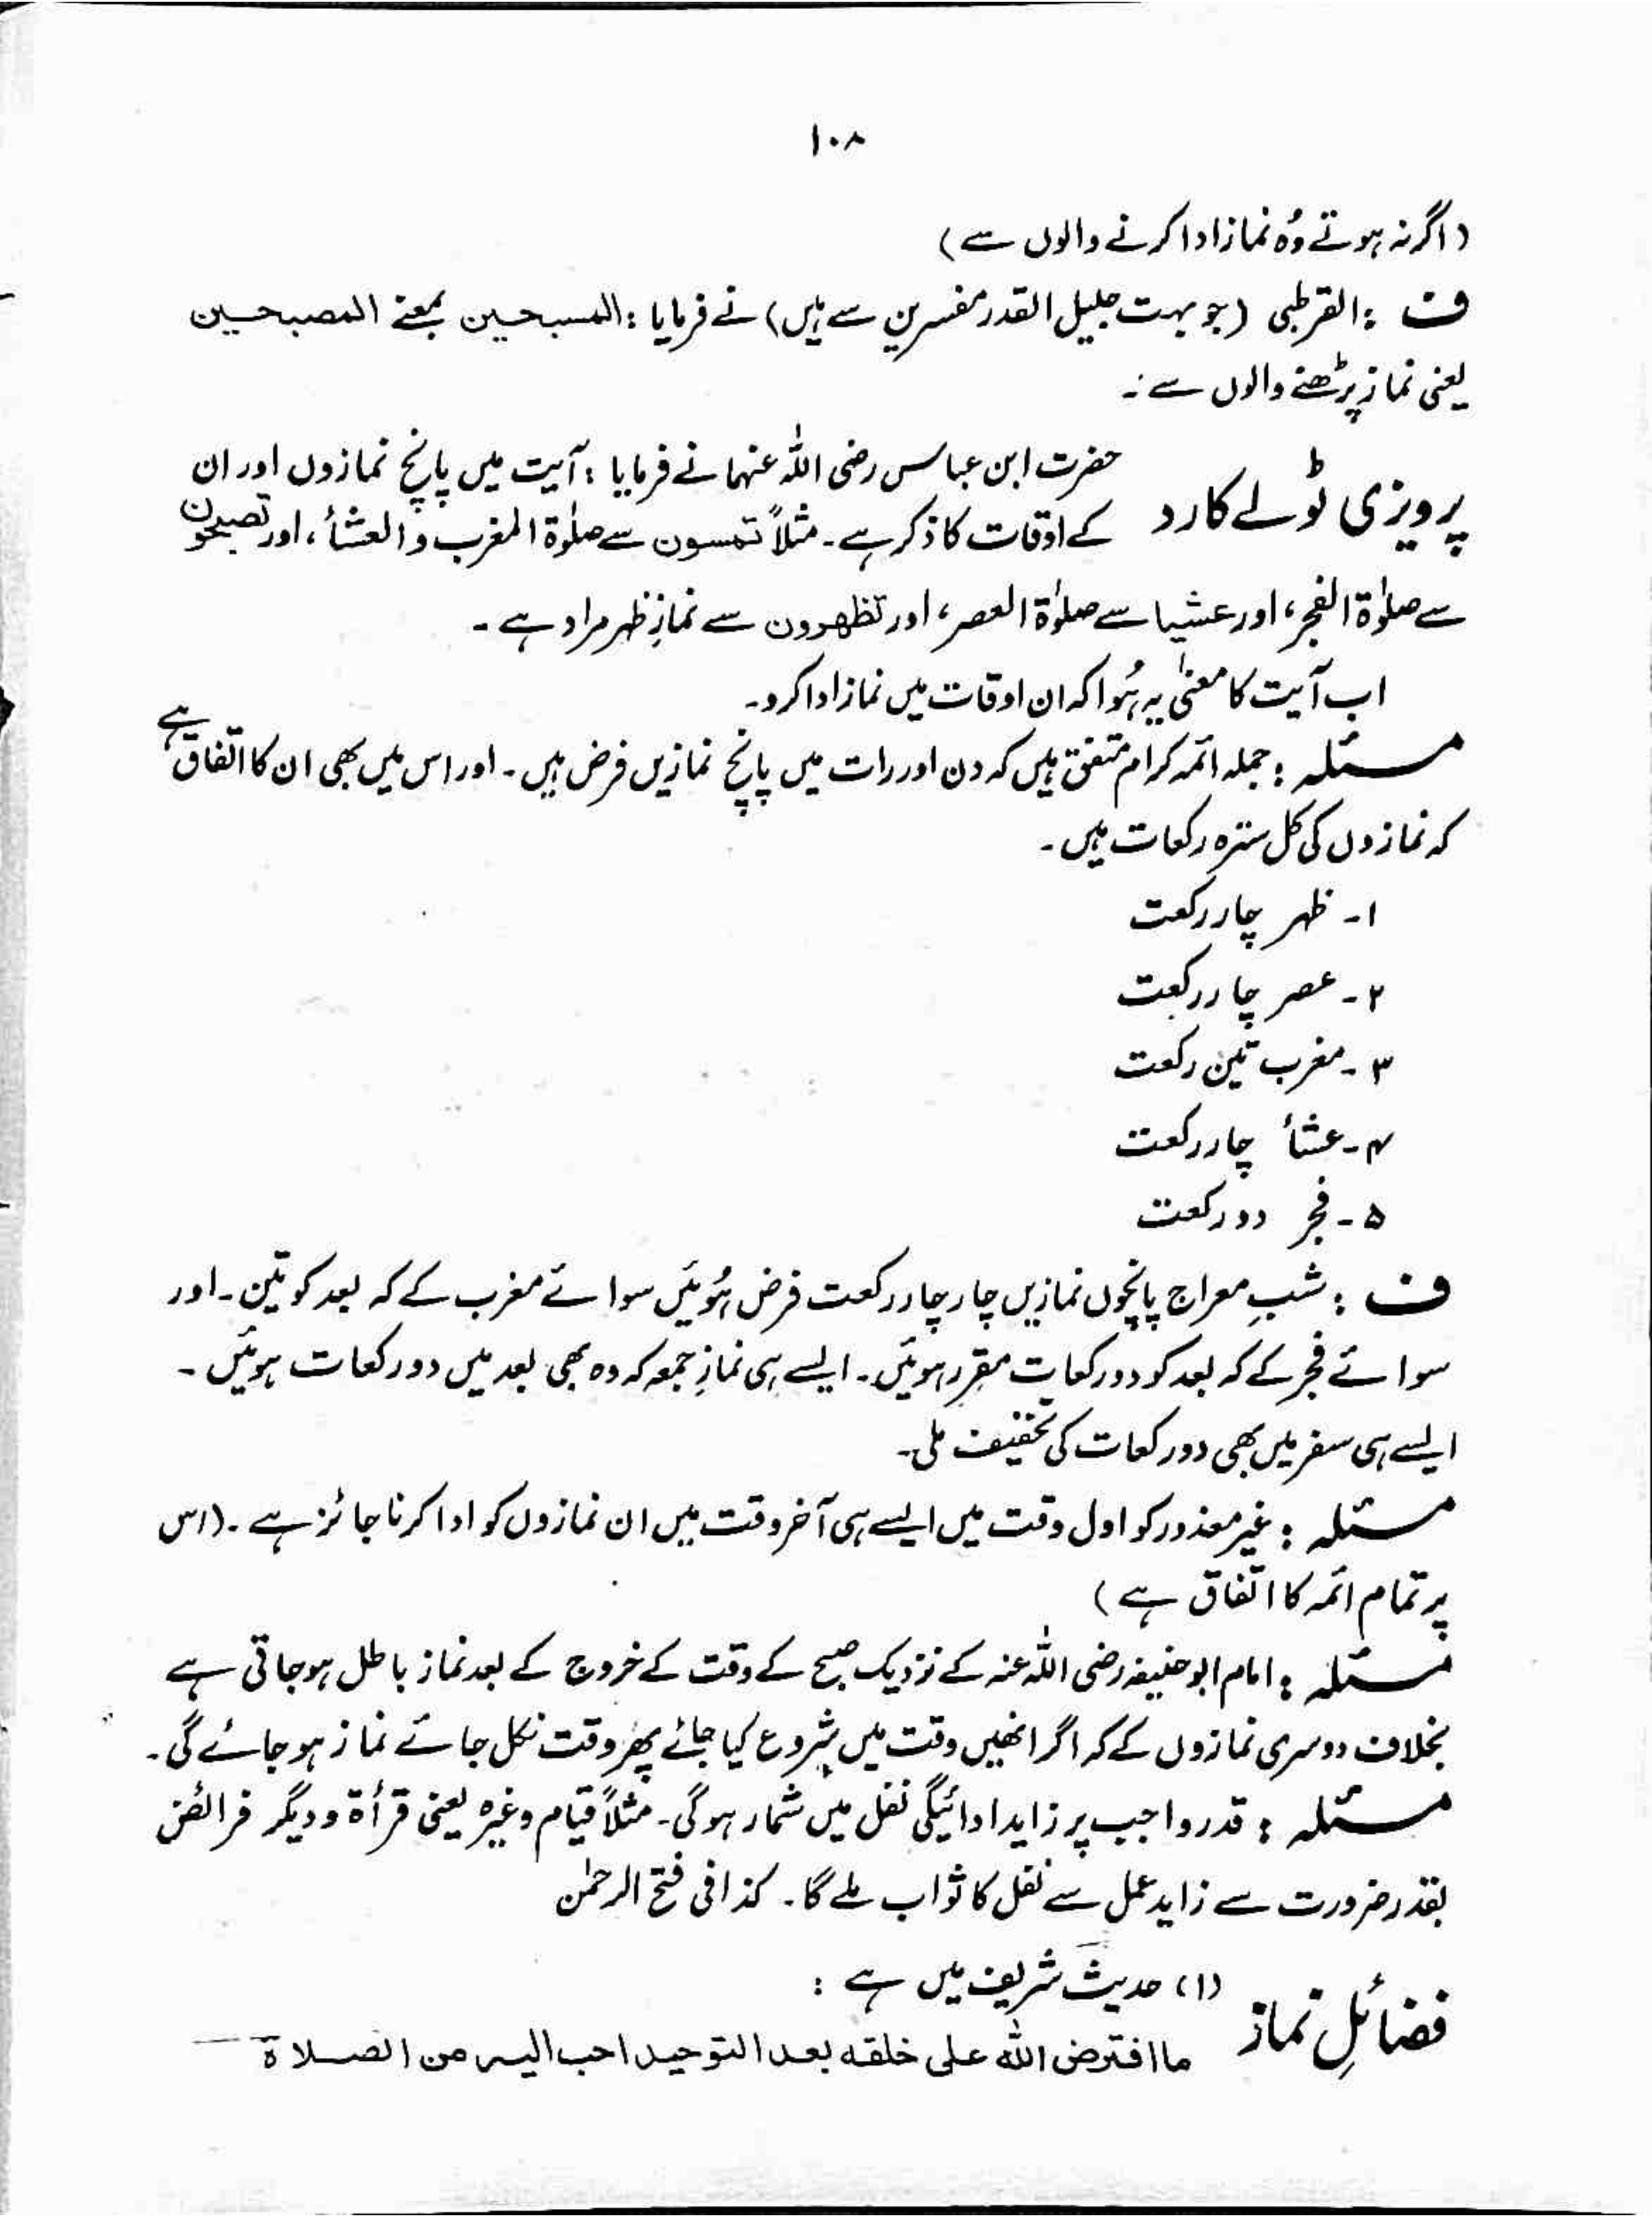 ۱۰۸
(اگر نہ ہوتے وُہ نماز ادا کرنے والوں سے)
ف : القرطبی (جو بہت جلیل القدر مفسرین سے ہیں) نے فرمایا : المسبحین بمعنے المصبحین
یعنی نماز پڑھنے والوں سے :۔
پرویزی ٹولے کا رد
حضرت ابن عباس رضی اللہ عنہما نے فرمایا : آیت میں پانچ نمازوں اور ان
کے اوقات کا ذکر ہے ۔ مثلاً تمسون سے صلٰوۃ المغرب و العشأ ، اور تصبحون
سے صلٰوۃ الفجر ، اور عشیا سے صلٰوۃ العصر ، اور تظھرون سے نمازِ ظہر مراد ہے ۔
اب آیت کا معنیٰ یہ ہُوا کہ ان اوقات میں نماز ادا کرو ۔
مسئلہ : جملہ ائمہ کرام متفق ہیں کہ دن اور رات میں پانچ نمازیں فرض ہیں ۔ اور اس میں بھی ان کا اتفاق ہے
کہ نمازوں کی کل سترہ رکعات ہیں ۔
۱۔ ظہر چار رکعت
۲۔ عصر چار رکعت
۳۔ مغرب تین رکعت
۴۔ عشأ چار رکعت
۵۔ فجر دو رکعت
ف : شبِ معراج پانچوں نمازیں چار چار رکعت فرض ہُوئیں سوائے مغرب کے کہ بعد کو تین ۔ اور
سوائے فجر کے کہ بعد کو دو رکعات مقرر ہوئیں ۔ ایسے ہی نمازِ جمعہ کہ وہ بھی بعد میں دو رکعات ہوئیں ۔
ایسے ہی سفر میں بھی دو رکعات کی تخفیف ملی ۔
مسئلہ : غیر معذور کو اول وقت میں ایسے ہی آخر وقت میں ان نمازوں کو ادا کرنا جائز ہے ۔ (اس
پر تمام ائمہ کا اتفاق ہے)
مسئلہ : امام ابو حنیفہ رضی اللہ عنہ کے نزدیک صبح کے وقت کے خروج کے بعد نماز باطل ہو جاتی ہے
بخلاف دوسری نمازوں کے کہ اگر انھیں وقت میں شروع کیا جائے پھر وقت نکل جائے نماز ہو جائے گی ۔
مسئلہ : قدر واجب پر زاید ادائیگی نفل میں شمار ہوگی ۔ مثلاً قیام وغیرہ یعنی قرأۃ و دیگر فرائض
بقدر ضرورت سے زاید عمل سے نفل کا ثواب ملے گا ۔ کذا فی فتح الرحمٰن
فضائلِ نماز
(۱) حدیث شریف میں ہے :
ما افترض اللہ علی خلقہ بعد التوحید احب الیہ من الصلاۃ